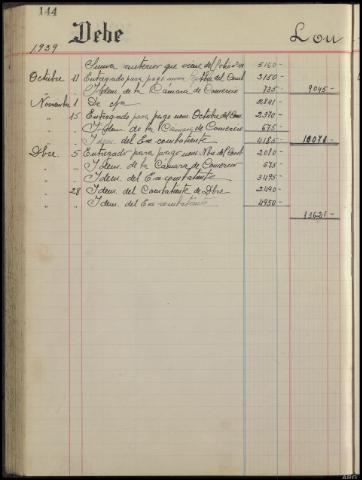 144
Debe
Con
1939
Suma anterior que viene del folio 5160-
Octubre 11 Entregado para pago nom del Comb 3150-
Idem de la Camara de Comercio 735- 9045-
Novembre 1 De cja 2841-
" 15 Entregado para pago nom Octubre del Com. 2370-
" " Idem de la Camara de Comercio 675-
" " Idem del Ex combatiente 4185- 10071-
Dbre 5 Entregado para pago nom Nbre del Comb 2010-
" " Idem de la Camara de Comercio 675-
" " Idem del Ex-combatiente 3495-
" 28 Idem del Combatiente de Dbre 2490-
" " Idem del Ex-combatiente 4950-
13621-